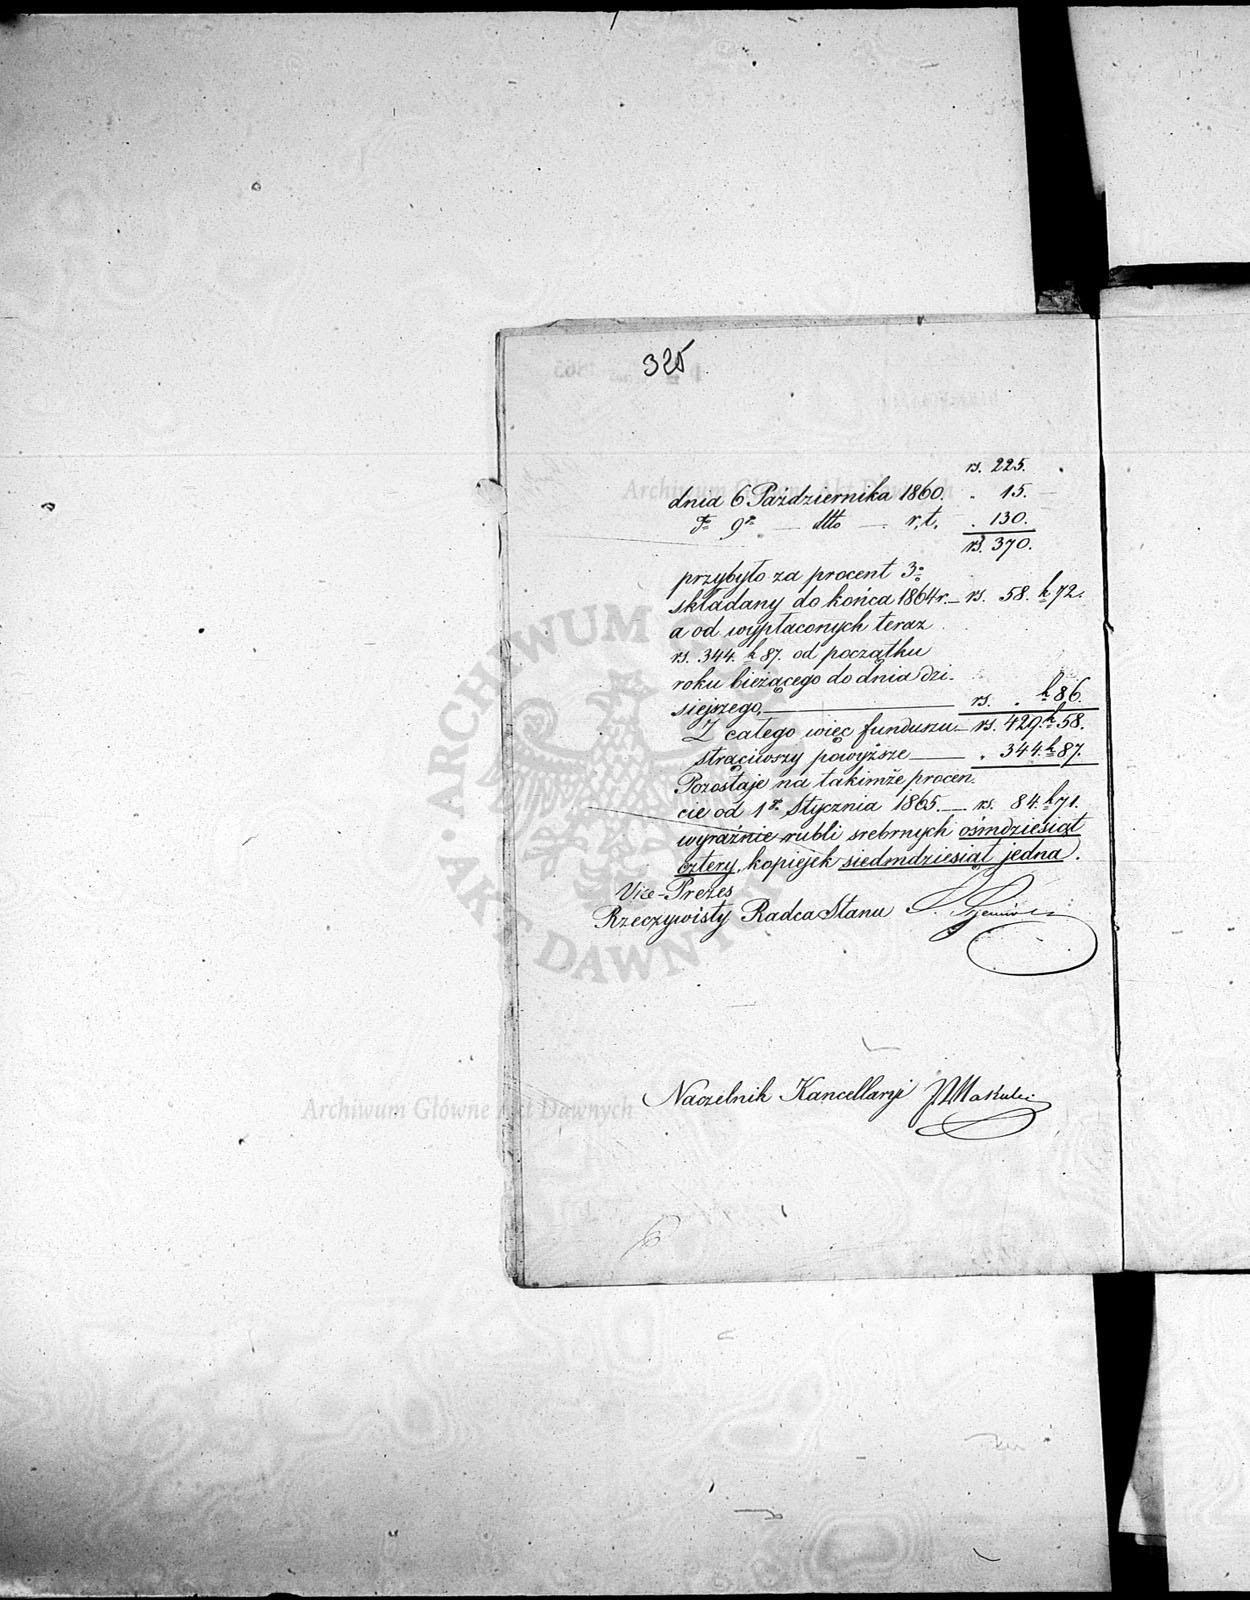 325
rs. 225.
dnia 6 Października 1860. „ 15.
do 9go — dtto — r. t. „ 130.
rs. 370.
przybyło za procent 3%
składany do końca 1864 r. — rs. 58. k 72.
a od wypłaconych teraz
rs. 344. k 87. od początku
roku bieżącego do dnia dzi-
siejszego, — rs. „ k 86.
Z całego więc funduszu — rs. 429. k 58.
strąciwszy powyższe — „ 344. k 87.
Pozostaje na takimże procen-
cie od 1go Stycznia 1865. — rs. 84. k 71.
wyraźnie rubli srebrnych ośmdziesiąt
cztery, kopiejek siedmdziesiąt jedna.
Vice-Prezes
Rzeczywisty Radca Stanu
Naczelnik Kancellaryi
ARCHIWUM GŁÓWNE AKT DAWNYCH
Archiwum Główne Akt Dawnych
Archiwum Główne Akt Dawnych